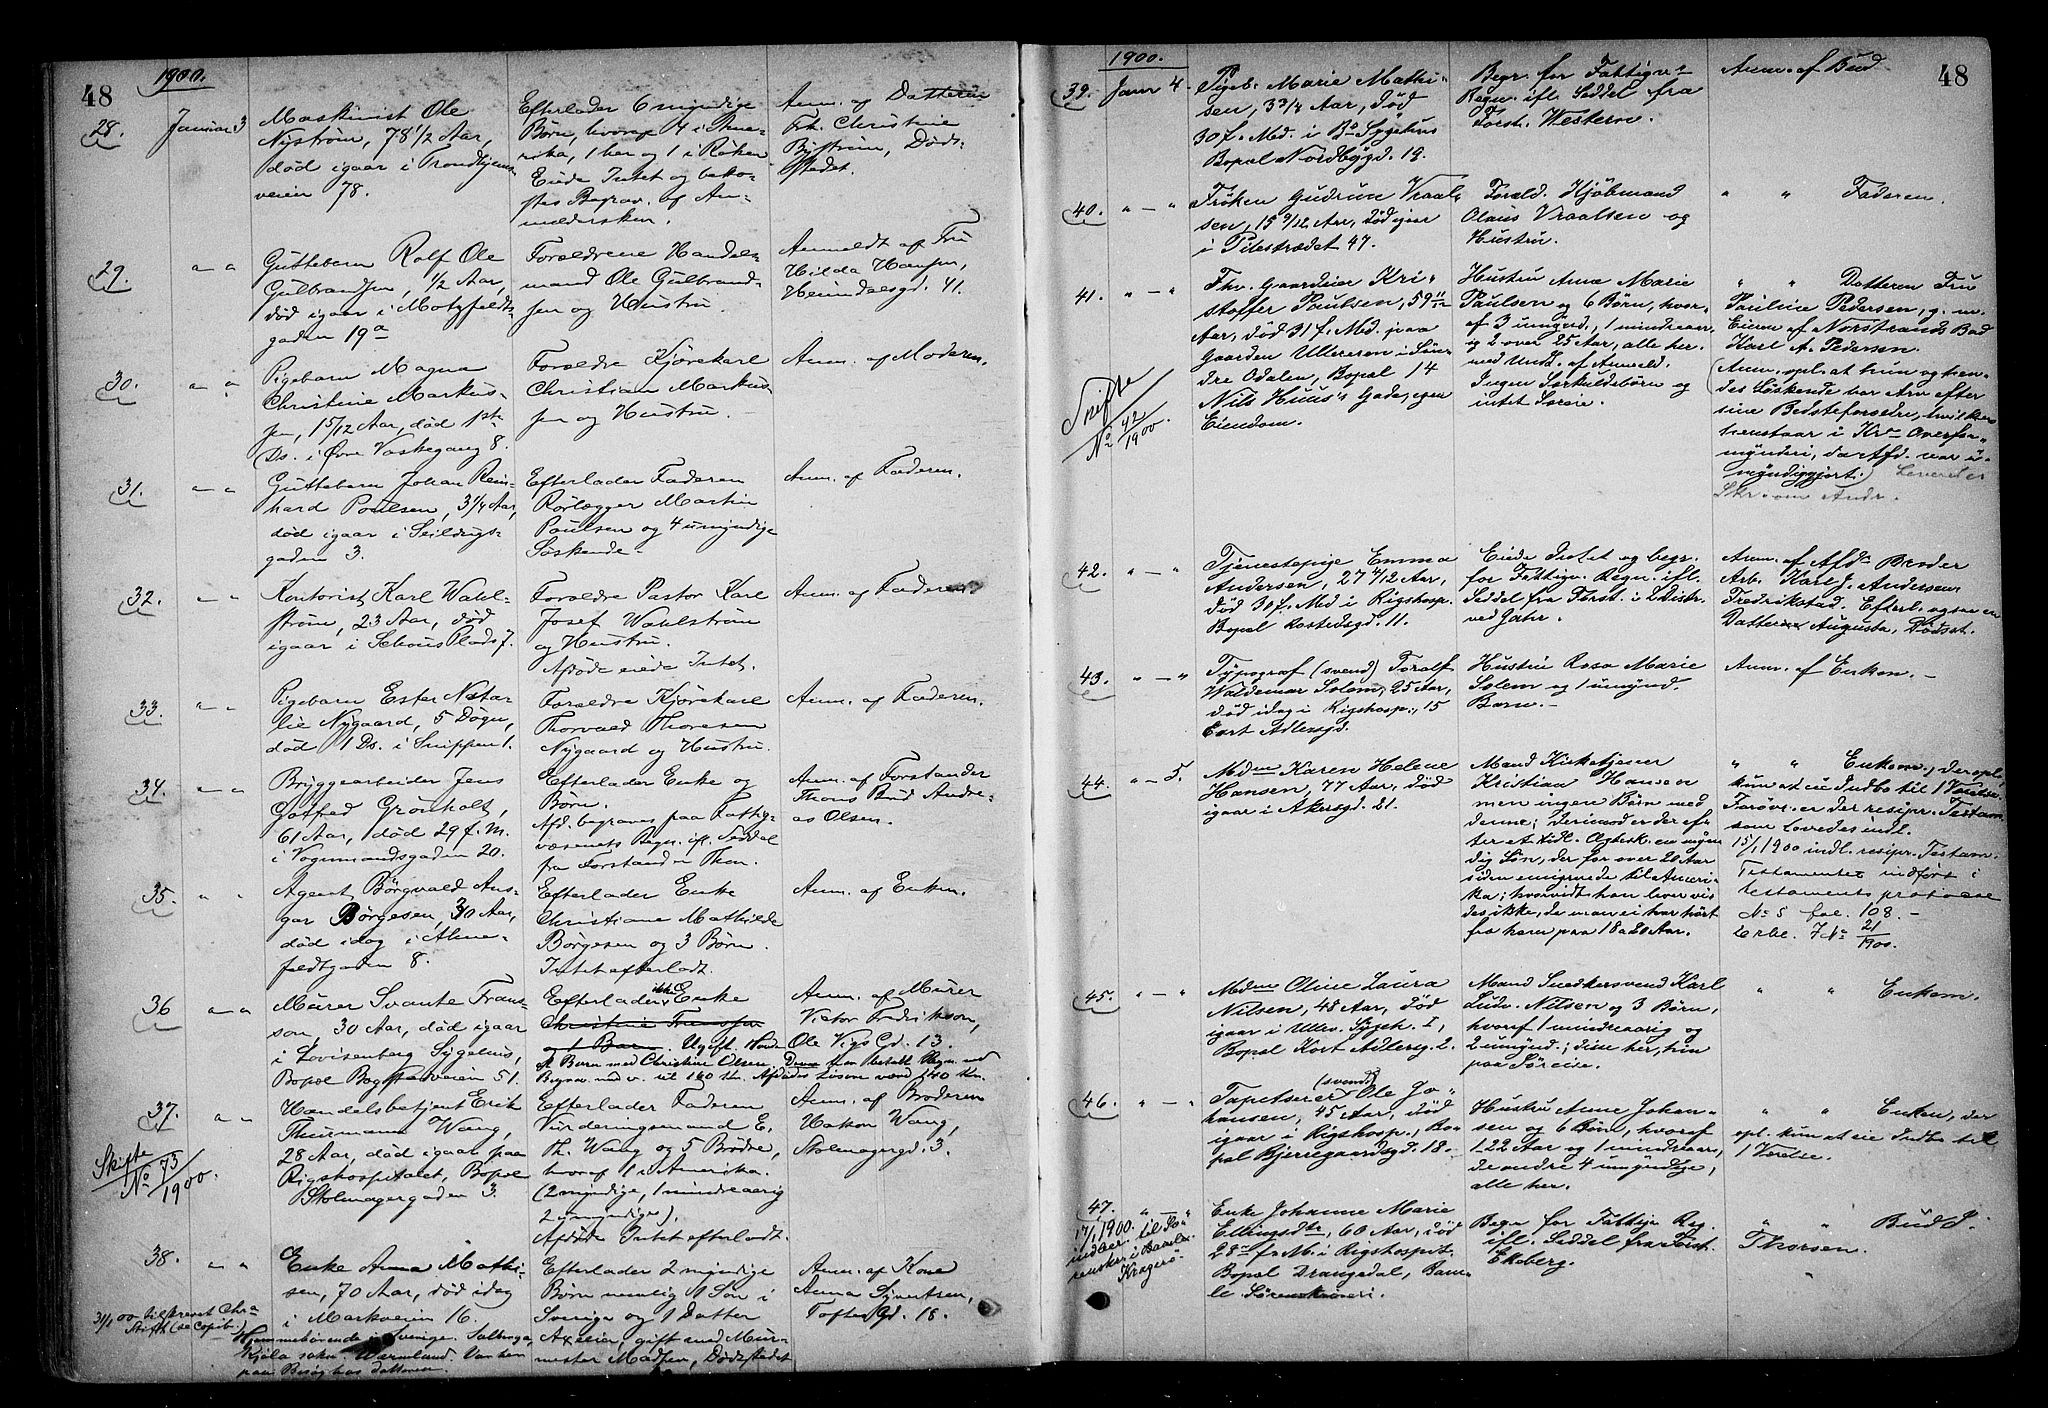 48
1900.
28.
Januar 3
Maskinist Ole
Nystrøm, 78 1/2 Aar,
død igaar i Trondhjems-
veien 78.
Efterlader 6 myndige
Børn, hvoraf 4 i Ame-
rika, 1 her og 1 i Røken
Eiede Intet og beko-
stes Begrav. af An-
mældersken.
Anm. af Datteren
Frk. Christine
Nystrøm, Døds-
stedet.
29.
" "
Guttebarn Rolf Ole
Gulbrandsen, 1/2 Aar,
død igaar i Motzfeldts-
gaden 19a
Forældrene Handels-
mand Ole Gulbrand-
sen og Hustru.
Anmeldt af Fru
Hilda Hansen,
Heimdalsgd. 41.
30.
" "
Pigebarn Magna
Christine Markus-
sen, 1 5/12 Aar, død 1ste
Ds. i Øvre Vaskegang 8.
Forældre Kjørekarl
Christian Markus-
sen og Hustru.
Anm. af Moderen.
31.
" "
Guttebarn Johan Rein-
hard Poulsen, 3 1/4 Aar,
død igaar i Seildugs-
gaden 3.
Efterlader Faderen
Rørlægger Martin
Poulsen og 4 umyndige
Søskende.
Anm. af Faderen.
32.
" "
Kontorist Karl Wahl-
strøm, 23 Aar, død
igaar i Schous Plads 7.
Forældre Pastor Karl
Josef Wahlstrøm
og Hustru.
Afdøde eiede Intet.
Anm. af Faderen.
33.
" "
Pigebarn Ester Nata-
lie Nygaard, 5 Døgn,
død 1 Ds. i Snippen 1.
Forældre Kjørekarl
Thorvald Thoresen
Nygaard og Hustru.
Anm. af Faderen.
34.
" "
Bryggearbeider Jens
Gotfred Grønholt,
61 Aar, død 29 f. M.
i Vognmandsgaden 20.
Efterlader Enke og
Børn.
Afd. begraves paa Fattig-
væsenets Regn. ifl. Seddel
fra Forstander Thon.
Anm. af Forstander
Thons Bud Andre-
as Olsen.
35.
" "
Agent Børgvald Ans-
gar Børgesen, 30 Aar,
død idag i Alme-
feldtgaden 8.
Efterlader Enke
Christiane Mathilde
Børgesen og 3 Børn.
Intet efterladt.
Anm. af Enken.
36
" "
Murer Svante Frans-
son, 30 Aar, død igaar
i Lovisenberg Sygehus,
Bopæl Bogstadveien 51.
Efterlader ikke Enke
Christine Fransson
og 1 Barn. Ugift. Havde
et Barn med Christine Olsen. Denne har betalt Regn. ved
Begrav. med v. til 160 Kr. Afdødes Løsøre værd 140 Kr.
Anm. af Murer
Victor Fredrikson,
Ole Vigs Gd. 13.
37.
" "
Skifte
No 73/1900.
Handelsbetjent Erik
Thurmann Wang,
28 Aar, død igaar paa
Rigshospitalet, Bopæl
Stolmagergaden 3.
Efterlader Faderen
Vurderingsmand E.
Th. Wang og 5 Brødre,
hvoraf 1 i Amerika.
(2 myndige, 1 mindreaarig
2 umyndige).
Afdøde Intet efterladt.
Anm. af Broderen
Hakon Wang,
Stolmagergd. 3.
38.
" "
Enke Anna Mathi-
sen, 70 Aar, død idag
i Markveien 16.
Efterlader 2 myndige
Børn nemlig 1 Søn i
Sverige og 1 Datter
Axeline, gift med Mur-
mester Madsen, Dødsstedet
Anm. af Kone
Anna Syvertsen,
Toftes Gd. 18.
31/1 00 tilskrevet Chra
Stift (se Copib.)
Hjemmehørende i Sverige.
Kjøla sokn Wermland. Var her
paa Besøg hos datteren.
48
1900.
39.
Janr 4
Pigeb. Marie Mathi-
sen, 3 3/4 Aar, død
30 f. Md. i B. Sygehus
Bopæl Nordbygd. 19.
Begr. for Fattigv.
Regn. ifl. Seddel fra
Forst. Western.
Anm. af Bud
40.
" — "
Frøken Gudrun Vraal-
sen, 15 9/12 Aar, død igaar
i Pilestrædet 47.
Foræld. Kjøbmand
Olaus Vraalsen og
Hustru.
" " Faderen.
41.
" — "
Skifte
No 42/1900.
Fhv. Gaardeier Kri-
stoffer Paulsen, 59 11/12
Aar, død 31 f. Md. paa
Gaarden Ulleren i Søn-
dre Odalen, Bopæl 14
Nils Huus's Gade, egen
Eiendom.
Hustru Anne Marie
Paulsen og 6 Børn, hvor-
af 3 umynd., 1 mindreaar-
ig 2 over 25 Aar, alle her.
ved Undt. af Anmeld.
Ingen Særkuldsbørn og
intet Særeie.
" " Datteren Fru
Pauline Pedersen, g. m.
Eieren af Norstrands Bad
Karl A. Pedersen.
(Anm. opl. at hun og hen-
des Søskende har Arv efter
sine Bedsteforældre, hvilken
henstaar i Kra Overfor-
mynderi, da Afd. var u-
myndiggjort.) Leverede
Skr. om Andr.
42.
" — "
Tjenestepige Emma
Andersen, 27 4/12 Aar,
død 30 f. Md i Rigshosp.
Bopæl Rostedsgd. 11.
Eiede Intet og begr.
for Fattigv. Regn. ifl.
Seddel fra Forst. i L Distr.
ved Jahr.
Anm. af Afdes Broder
Arb. Karl J. Andersen
Fredrikstad. Efterl. ogsaa en
Datter Augusta, Dødsst.
43.
" — "
Typograf (svend) Toralf
Waldemar Solem, 25 Aar,
død idag i Rigshosp., 15
Cort Adlersgd.
Hustru Rosa Marie
Solem og 1 umynd.
Barn.
Anm. af Enken.
44.
" — 5.
Mdme Karen Helene
Hansen, 77 Aar, død
igaar i Akersgd. 21.
Mand Kirketjener
Kristian Hansen
men ingen Børn med
denne; derimod er der ef-
ter et tidl. Ægtesk. en myn-
dig Søn, der for over 20 Aar
siden emigrerede til Ameri-
ka; hvorvidt han lever vi-
des ikke, da man ei har hørt
fra ham paa 18 a 20 Aar.
" " Enkem., der opl.
kun at eie Indbo til 1 Værelse
Forøvr. er der resipr. Testam.
som lovedes indl.
15/1 1900 indl. resipr. Testam.
Testamentet indført i
testaments protocol
No 5 fol. 108.
No 21/1900.
45.
" — "
Mdme Oline Laura
Nilsen, 48 Aar, død
igaar i Ullev. Sygeh. I,
Bopæl Kort Adlersg. 2.
Mand Snedkersvend Karl
Ludv. Nilsen og 3 Børn,
hvoraf 1 mindreaarig og
2 umynd.; disse her, hin
paa Søreise.
" " Enkem.
46.
" — "
Tapetserer (svend) Ole Jo-
hansen, 45 Aar, død
igaar i Rigshosp., Bo-
pæl Bjerregaardsgd. 18.
Hustru Anne Johan-
sen og 6 Børn, hvoraf
1 22 Aar og 1 mindreaar,
de andre 4 umyndige,
alle her.
" " Enken, der
opl. kun at eie Indbo til
1 Værelse.
47.
" — "
17/1 1900.
indber. til So-
renskr. i
Kragerø
Enke Johanne Marie
Ellingsdtr, 60 Aar, død
28de f. M. i Rigshospit.
Bopæl Drangedal, Bam-
le Sorenskriveri.
Begr for Fattigv. Reg.
ifl. Seddel fra Forst.
Ekeberg.
" " Bud J.
Thorsen.